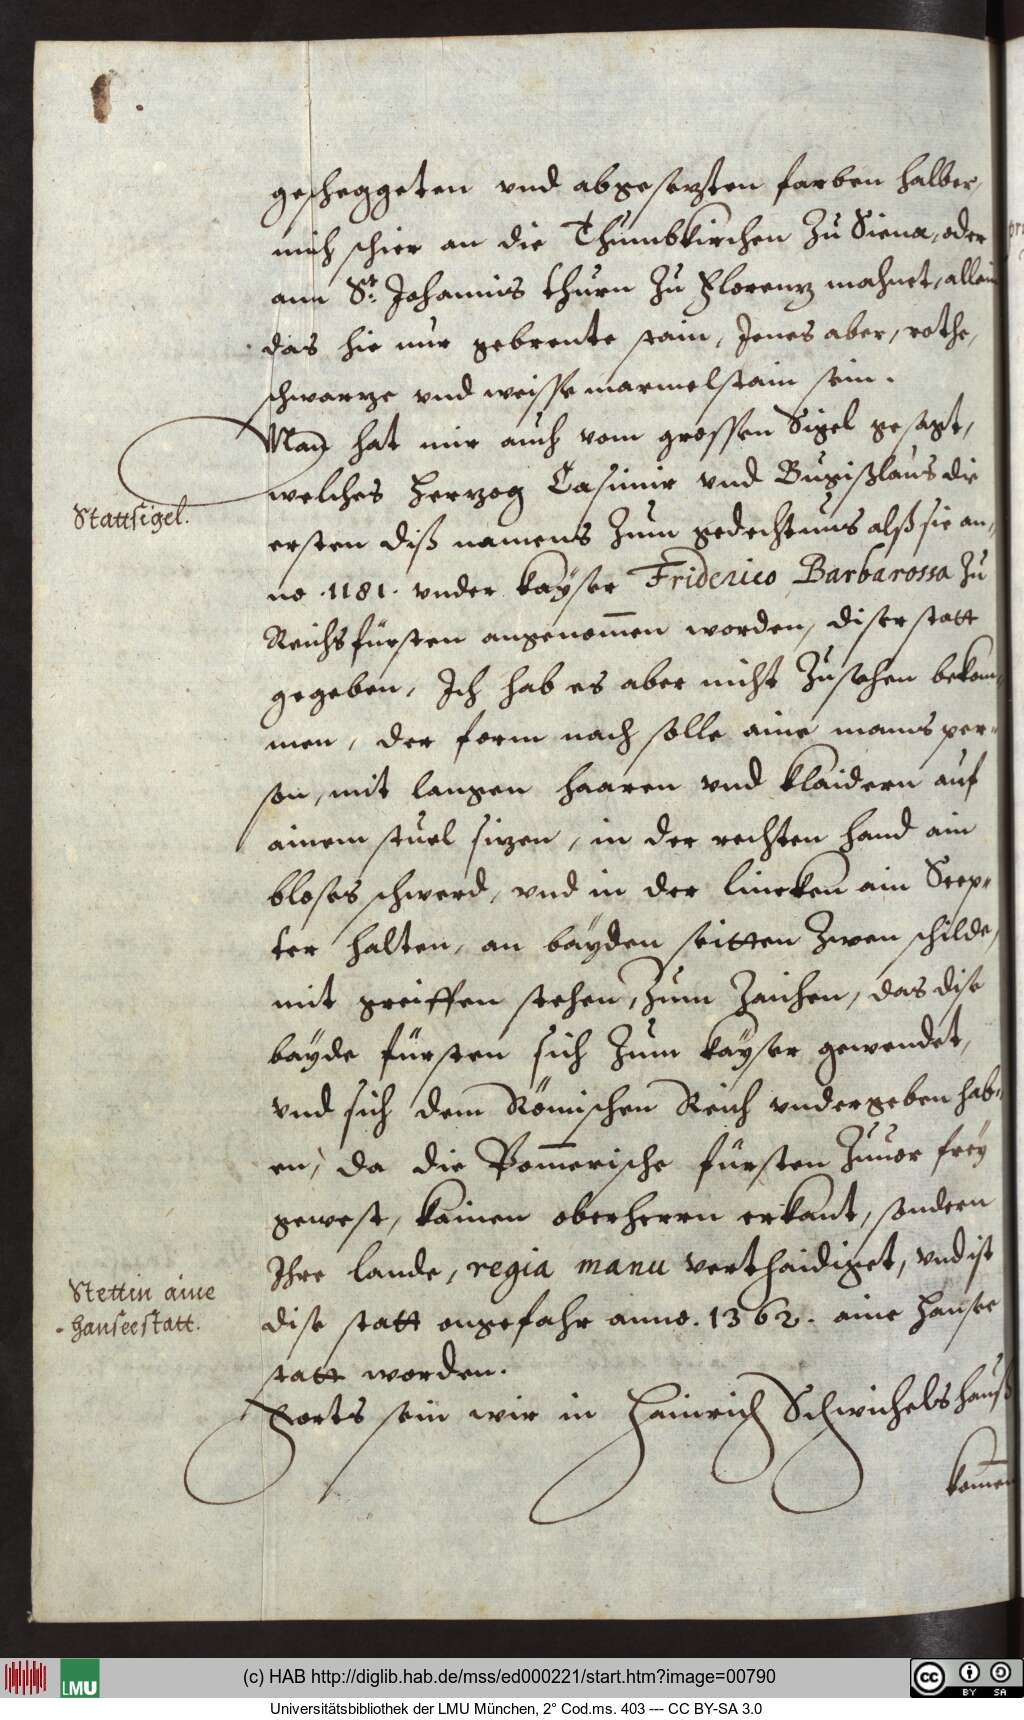 gescheggeten vnd abgesezten farben halber,
mich schier an die Thumbkirchen zu Siena, oder
ann St: Johannis thurn zu Florenz mahnet, allein
das hie nur gebrente stain, Jenes aber, rothe,
schwarze vnd weisse marmelstain sein.
Man hat mir auch vom grossen Sigel gesagt,
Stattsigel.
welches Herzog Casimir vnd Bugißlaus die
ersten diß namens zum gedechtnus alß sie an-
no .1181. vnder kaÿser Friderico Barbarossa zu
Reichsfürsten angenom̄en worden, diser statt
gegeben, Ich hab es aber nicht zusehen bekom-
men, der form nach solle aine manns per-
son, mit langen haaren vnd klaidern auf
ainem stuel sizen, in der rechten hand ain
bloses schwerd, vnd in der lincken ain Scep-
ter halten, an baÿden seitten zwen schilde,
mit greiffen stehen, zum zaichen, das dise
baÿde fürsten sich zum kaÿser gewendet,
vnd sich dem Römischen Reich vndergeben hab-
en, da die Pom̄erische fürsten zuuor freÿ
gewest, kainen oberherrn erkant, sondern
Ihre lande, regia manu verthaidiget, vnd ist
Stettin aine
Hanseestatt.
dise statt ongefahr anno. 1362. aine Hansee
statt worden.
Forts sein wir in Hainrich Schwichels hauß
kom̄en
(c) HAB http://diglib.hab.de/mss/ed000221/start.htm?image=00790
LMU
BY SA
Universitätsbibliothek der LMU München, 2° Cod.ms. 403 --- CC BY-SA 3.0